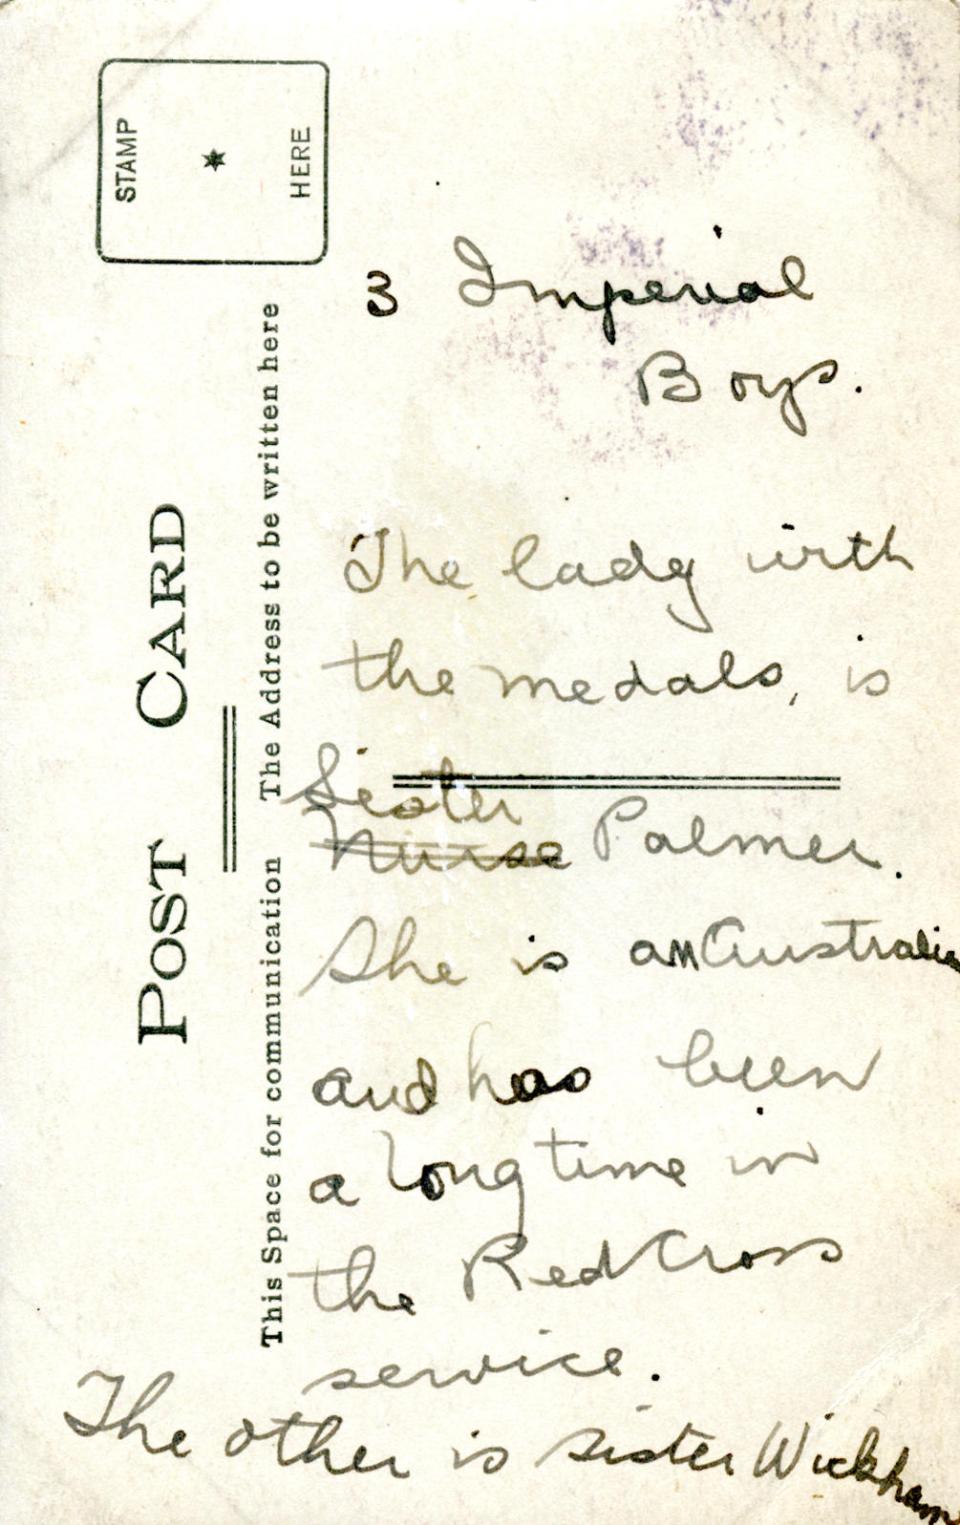 STAMP
HERE
POST CARD
This Space for communication
The Address to be written here
3 Imperial
Boys.
The lady with
the medals, is
Sister
Nurse Palmer.
She is an Australian
and has been
a long time in
the Red Cross
service.
The other is Sister Wickham